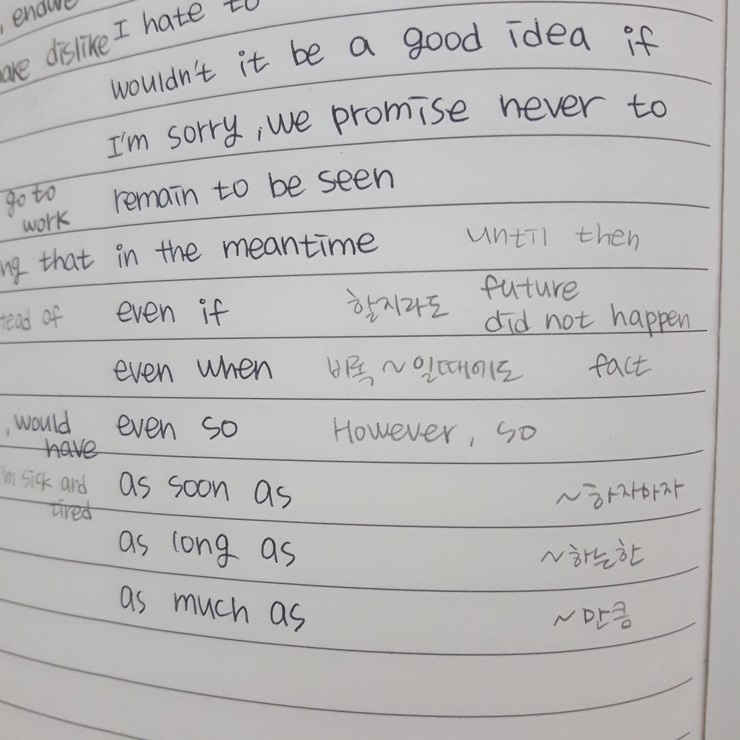 , endure
I hate to
dislike
wouldn't it be a good idea if
I'm sorry, we promise never to
go to
work
remain to be seen
that in the meantime until then
even if 할지라도 future
did not happen
of
even when 비록 ~일때에도 fact
, would
have
even so However, so
sick and
tired
as soon as ~하자마자
as long as ~하는한
as much as ~만큼